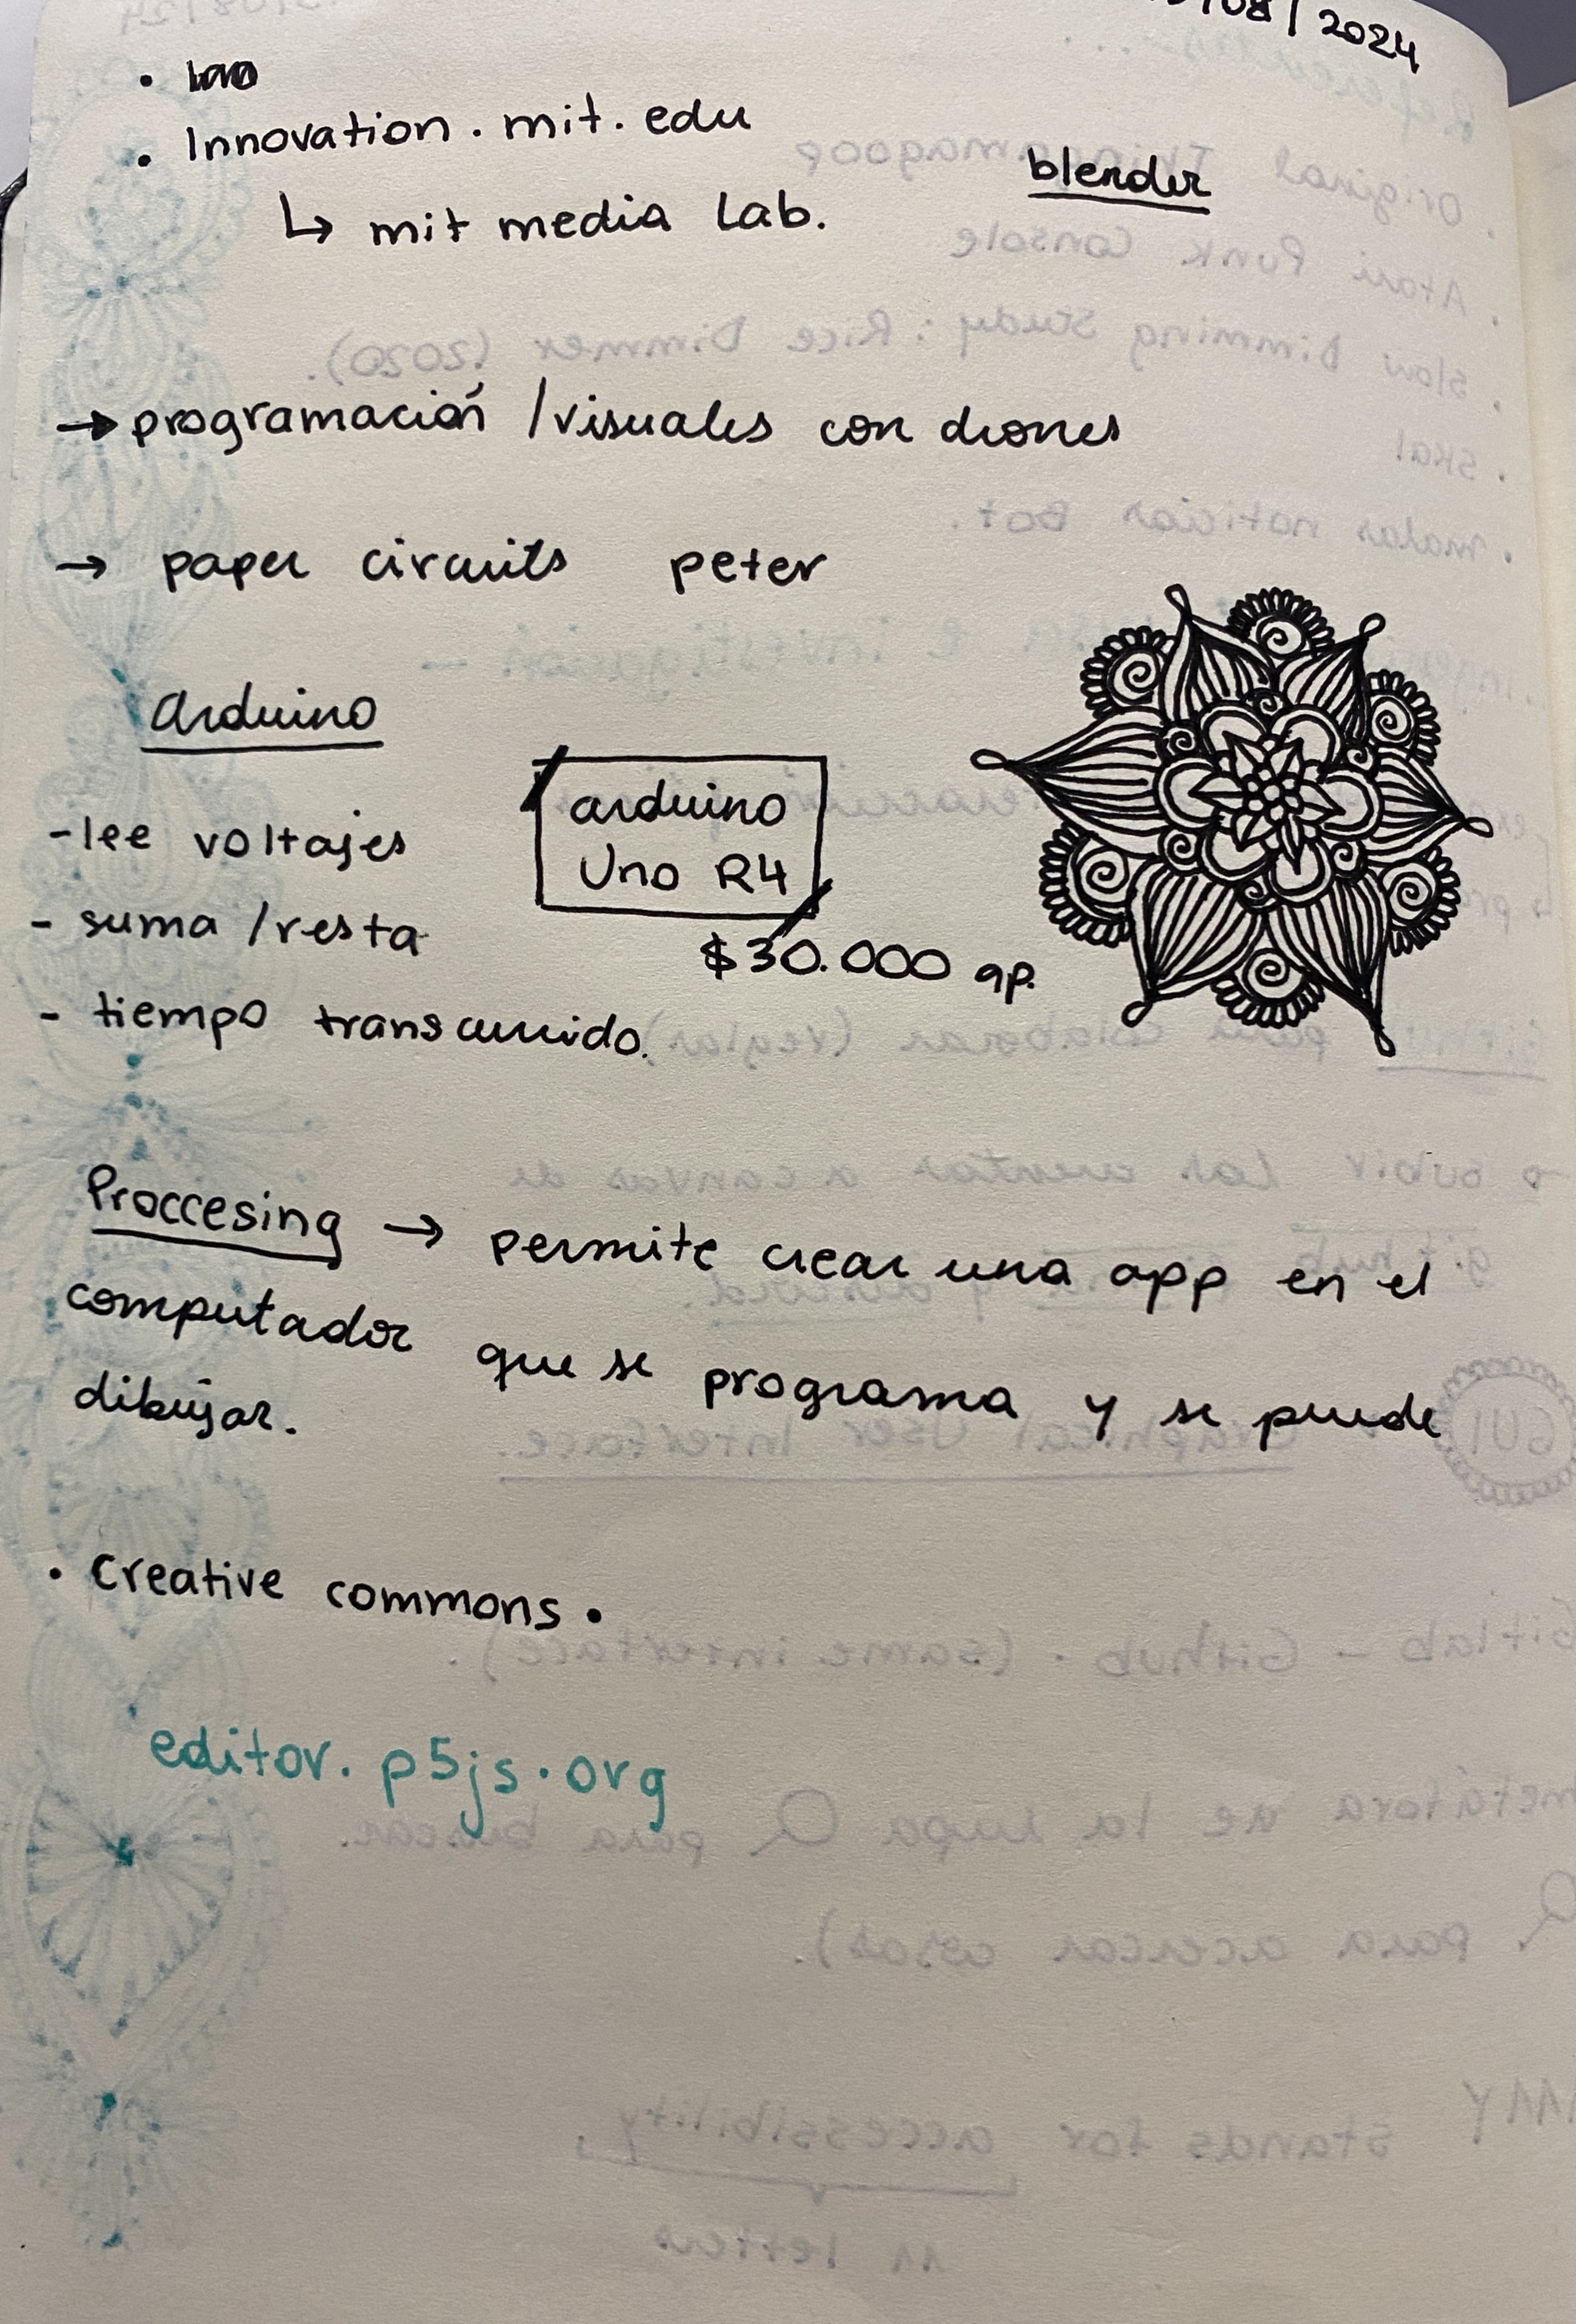 /08/2024
• Innovation. mit. edu
↳ mit media Lab.
blender
→ programación /visuales con drones
→ paper circuits peter
arduino
- lee voltajes
- suma /resta
- tiempo transcurrido.
arduino
Uno R4
$30.000 ap.
Proccesing → permite crear una app en el
computador que se programa y se puede
dibujar.
• Creative commons •
editor. p5js.org